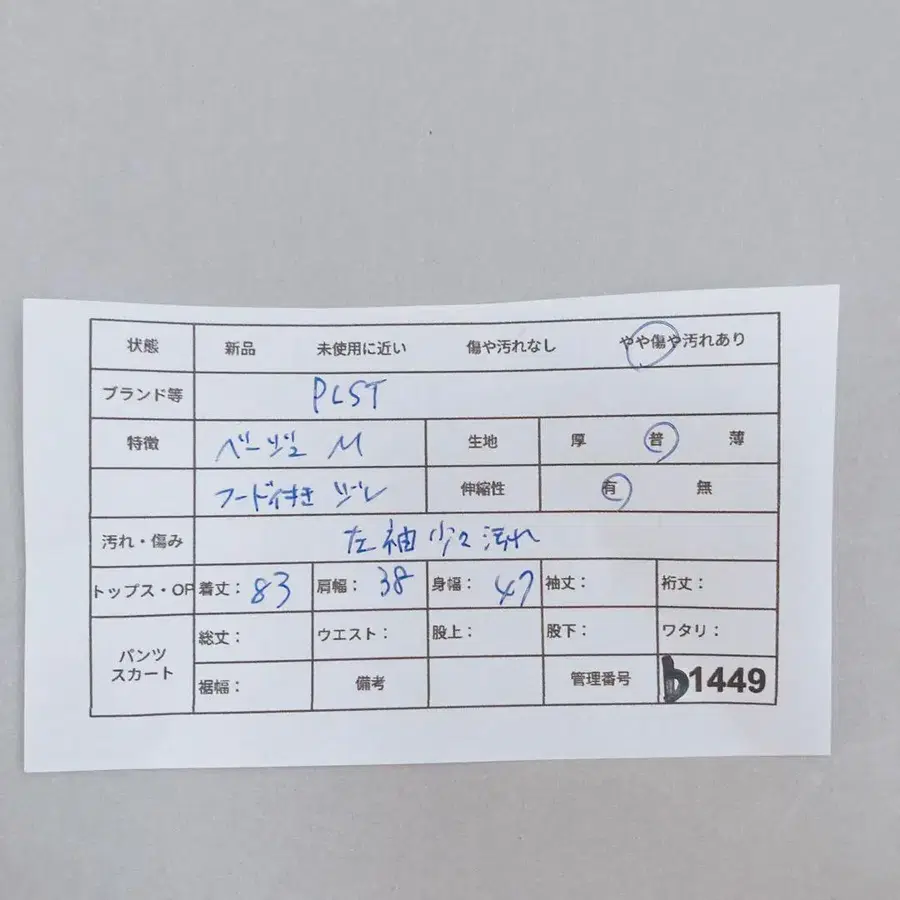 状態 新品 未使用に近い 傷や汚れなし やや傷や汚れあり
ブランド等 PLST
特徴 ベージュ M 生地 厚 普 薄
フード付き ジレ 伸縮性 有 無
汚れ・傷み 左袖少々汚れ
トップス・OP 着丈:83 肩幅:38 身幅:47 袖丈: 裄丈:
パンツ スカート 総丈: ウエスト: 股上: 股下: ワタリ:
裾幅: 備考 管理番号 b1449